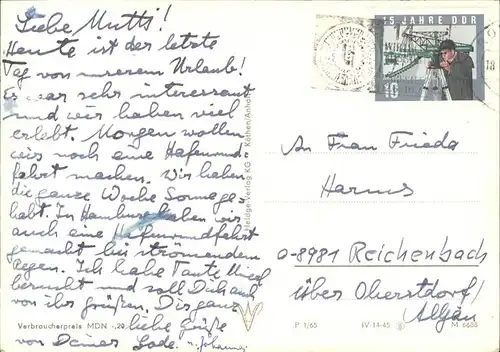 Liebe Mutti!
Heute ist der letzte
Tag von unserem Urlaub!
Es war sehr interessant
und wir haben viel
erlebt. Morgen wollen
wir noch eine Hafenrund-
fahrt machen. Wir haben
die ganze Woche Sonne ge-
habt. In Hamburg haben wir
auch eine Hafenrundfahrt
gemacht bei strömendem
Regen. Ich habe Tante
besucht und soll Dich auch
von ihr grüßen. Dir ganz
liebe Grüße
von Deiner
Verbraucherpreis MDN -,20
Heldge-Verlag KG Köthen/Anhalt
15 JAHRE DDR
10
18
An Frau Frieda
Harms
0-8981 Reichenbach
über Oberstdorf/
Allgäu
P 1/65 IV-14-45 M 6688